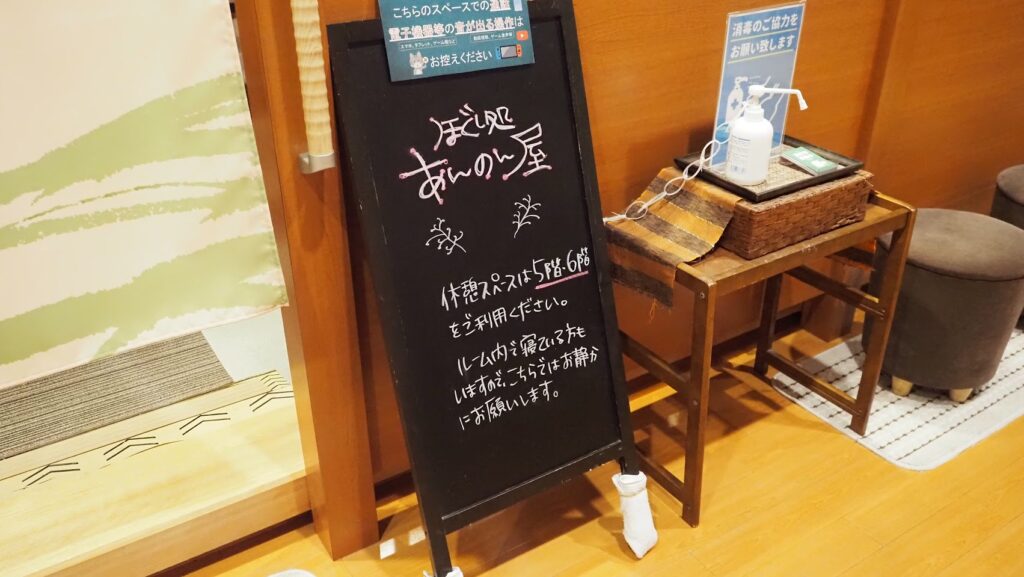 こちらのスペースでの通話
電子機器等の音が出る操作は
スマホ、タブレット、ゲーム機など
動画視聴、ゲーム音声等
お控えください
ほぐし処
あんのん屋
休憩スペースは5階・6階
をご利用ください。
ルーム内で寝ている方も
いますので、こちらではお静か
にお願いします。
消毒のご協力を
お願い致します